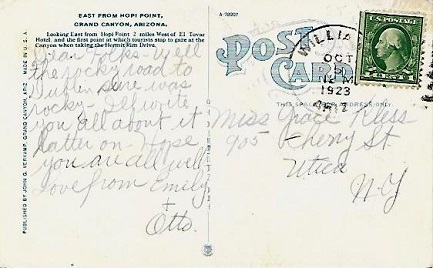 EAST FROM HOPI POINT,
GRAND CANYON, ARIZONA.
Looking East from Hopi Point 2 miles West of El Tovar
Hotel and the first point at which tourists stop to gaze at the
Canyon when taking the Hermit Rim Drive.
Dear Folks - Well
the rocky road to
Dublin sure was
rocky - I'll write
you all about it
latter on - Hope
you are all well
Love from Emily
+
Otto.
MADE IN U.S.A.
PUBLISHED BY JOHN G. VERKAMP, GRAND CANYON, ARIZ.
A-78907
POST
CARD
THIS SPACE FOR ADDRESS ONLY.
WILLIA
OCT
12 M
1923
ARIZ
U.S. POSTAGE
1 CENT 1
Miss Grace Kless
905 Cherry St
Utica
N-Y